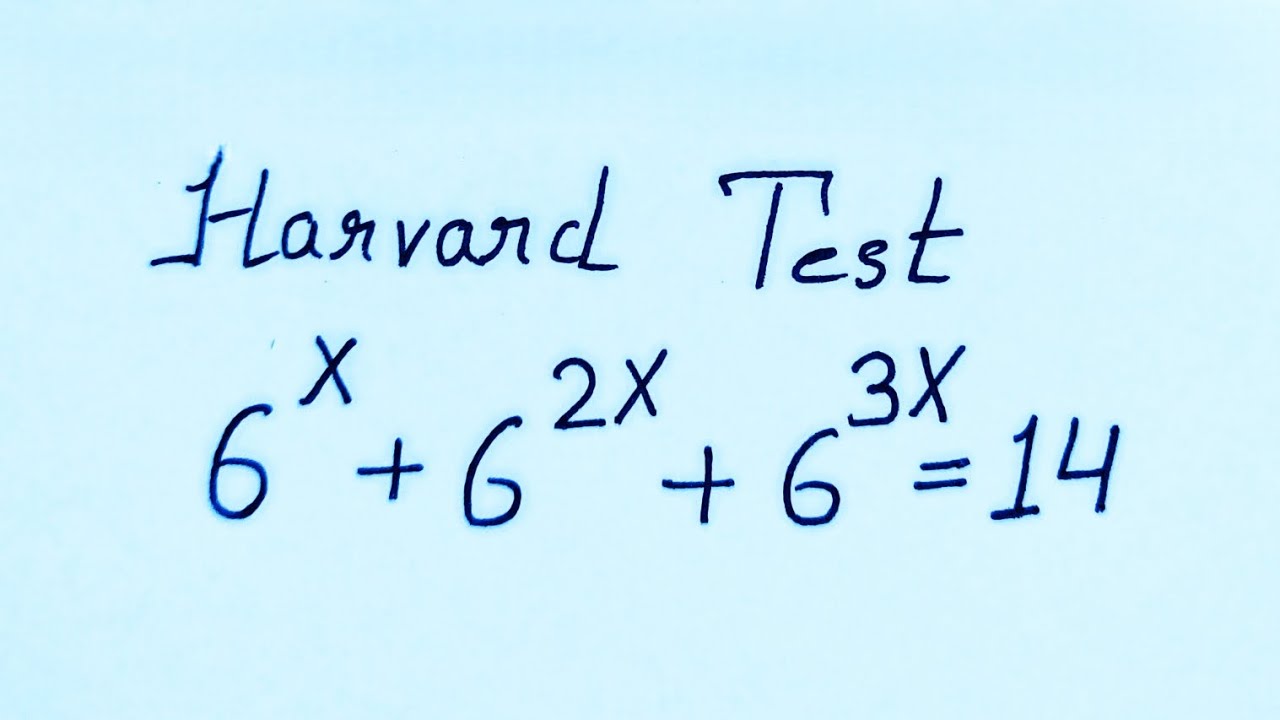 Harvard Test
6^x + 6^2x + 6^3x = 14